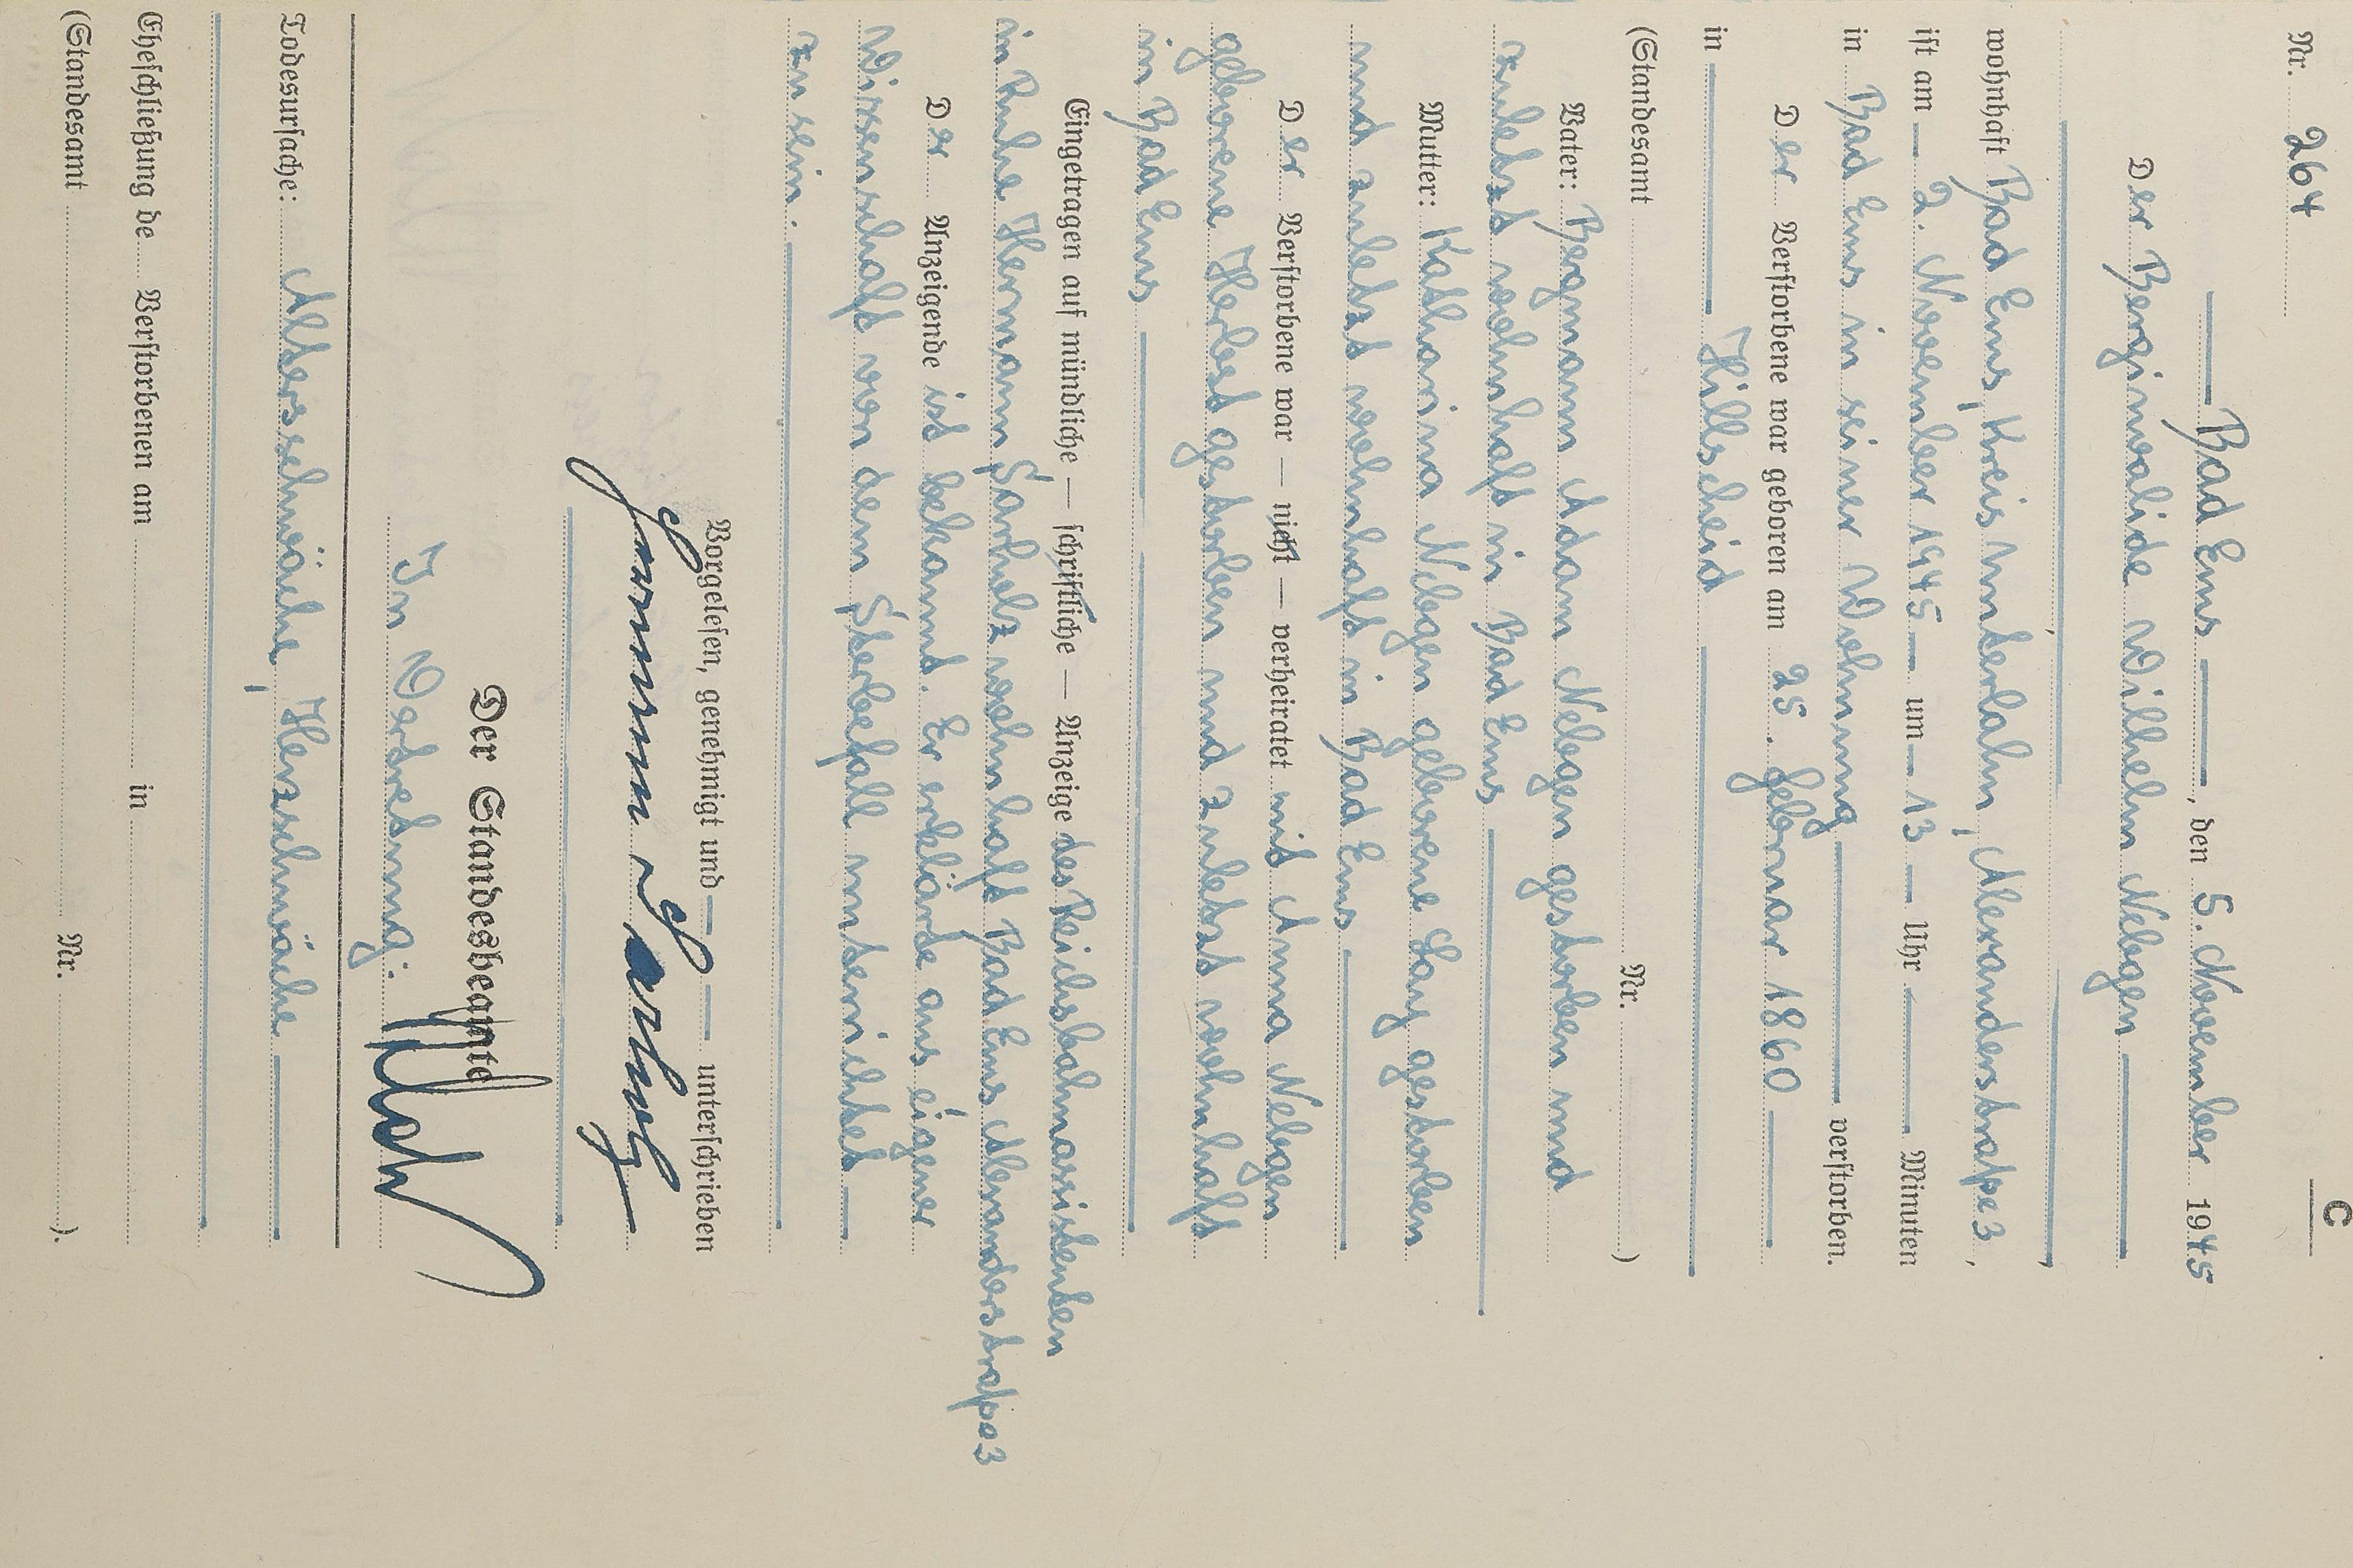 C
Nr. 264
— Bad Ems —, den 5. November 1945
Der Berginvalide Wilhelm Nebgen —
wohnhaft Bad Ems, Kreis Unterlahn, Alexanderstraße 3,
ist am — 2. November 1945 — um — 13 — Uhr — Minuten
in Bad Ems in seiner Wohnung — verstorben.
Der Verstorbene war geboren am 25. Februar 1860 —
in — Hillscheid —
(Standesamt Nr. )
Vater: Bergmann Adam Nebgen gestorben und
zuletzt wohnhaft in Bad Ems —
Mutter: Katharina Nebgen geborene Lay gestorben
und zuletzt wohnhaft in Bad Ems —
Der Verstorbene war — nicht — verheiratet mit Anna Nebgen
geborene Herbst gestorben und zuletzt wohnhaft
in Bad Ems —
Eingetragen auf mündliche — schriftliche — Anzeige des Reichsbahnassistenten
in Ruhe Hermann Sarholz wohnhaft Bad Ems Alexanderstraße 3
Der Anzeigende ist bekannt. Er erklärte aus eigener
Wissenschaft von dem Sterbefall unterrichtet —
zu sein. —
Vorgelesen, genehmigt und — unterschrieben
Hermann Sarholz
Der Standesbeamte
In Vertretung:
Todesursache: Altersschwäche, Herzschwäche —
Eheschließung de Verstorbenen am in
(Standesamt Nr. ).